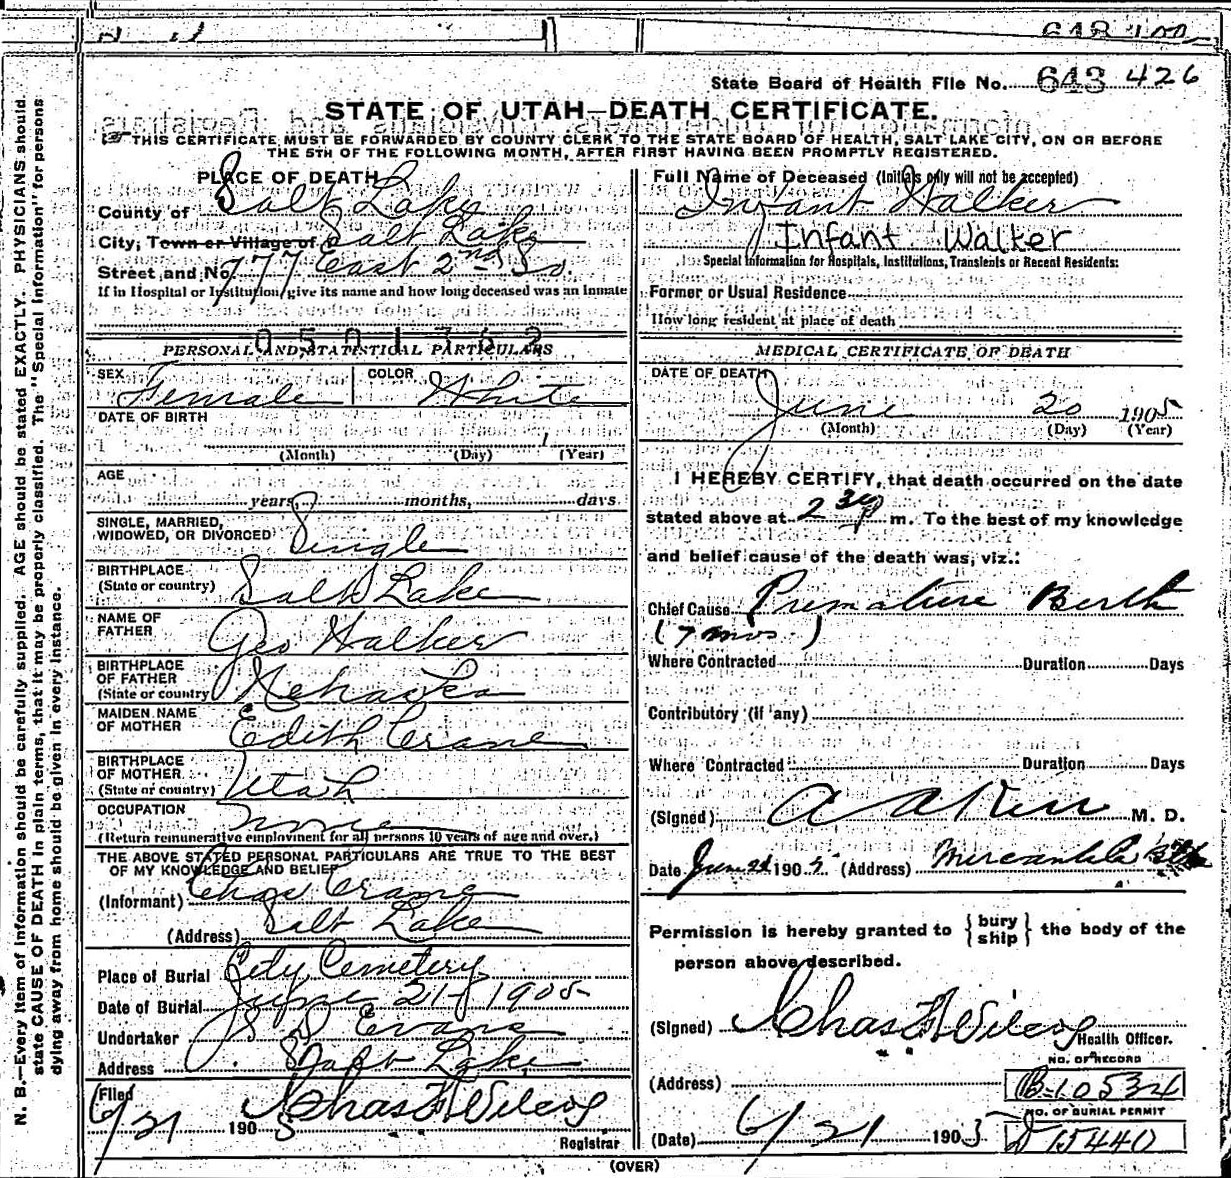 State Board of Health File No. 643 426
STATE OF UTAH—DEATH CERTIFICATE.
THIS CERTIFICATE MUST BE FORWARDED BY COUNTY CLERK TO THE STATE BOARD OF HEALTH, SALT LAKE CITY, ON OR BEFORE
THE 5TH OF THE FOLLOWING MONTH, AFTER FIRST HAVING BEEN PROMPTLY REGISTERED.
N. B.—Every item of information should be carefully supplied. AGE should be stated EXACTLY. PHYSICIANS should
state CAUSE OF DEATH in plain terms, that it may be properly classified. The "Special Information" for persons
dying away from home should be given in every instance.
PLACE OF DEATH
County of Salt Lake
City, Town or Village of Salt Lake
Street and No. 777 East 2nd So.
If in Hospital or Institution, give its name and how long deceased was an Inmate
0501762
PERSONAL AND STATISTICAL PARTICULARS
SEX Female COLOR White
DATE OF BIRTH
(Month) (Day) (Year)
AGE
years, months, days
SINGLE, MARRIED,
WIDOWED, OR DIVORCED Single
BIRTHPLACE
(State or country) Salt Lake
NAME OF
FATHER Geo Walker
BIRTHPLACE
OF FATHER
(State or country)
MAIDEN NAME
OF MOTHER Edith Crane
BIRTHPLACE
OF MOTHER
(State or country) Utah
OCCUPATION None
(Return remunerative employment for all persons 10 years of age and over.)
THE ABOVE STATED PERSONAL PARTICULARS ARE TRUE TO THE BEST
OF MY KNOWLEDGE AND BELIEF
(Informant) Chas Crane
(Address) Salt Lake
Place of Burial City Cemetery
Date of Burial June 21- 1905
Undertaker S D Evans
Address Salt Lake
Filed
6/21 1905 Chas F Wilcox
Registrar
Full Name of Deceased (Initials only will not be accepted)
Infant Walker
Infant Walker
Special Information for Hospitals, Institutions, Transients or Recent Residents:
Former or Usual Residence
How long resident at place of death
MEDICAL CERTIFICATE OF DEATH
DATE OF DEATH
June 20 1905
(Month) (Day) (Year)
I HEREBY CERTIFY, that death occurred on the date
stated above at 2 30 P m. To the best of my knowledge
and belief cause of the death was, viz.:
Chief Cause Premature Berth
(7 mos.)
Where Contracted Duration Days
Contributory (if any)
Where Contracted Duration Days
(Signed) A A Kerr M. D.
Date June 21 1905. (Address) Mercantile
Permission is hereby granted to {bury ship} the body of the
person above described.
(Signed) Chas F Wilcox
Health Officer.
(Address)
NO. OF RECORD
B-10534
NO. OF BURIAL PERMIT
(Date) 6/21 1905 D 15440
(OVER)